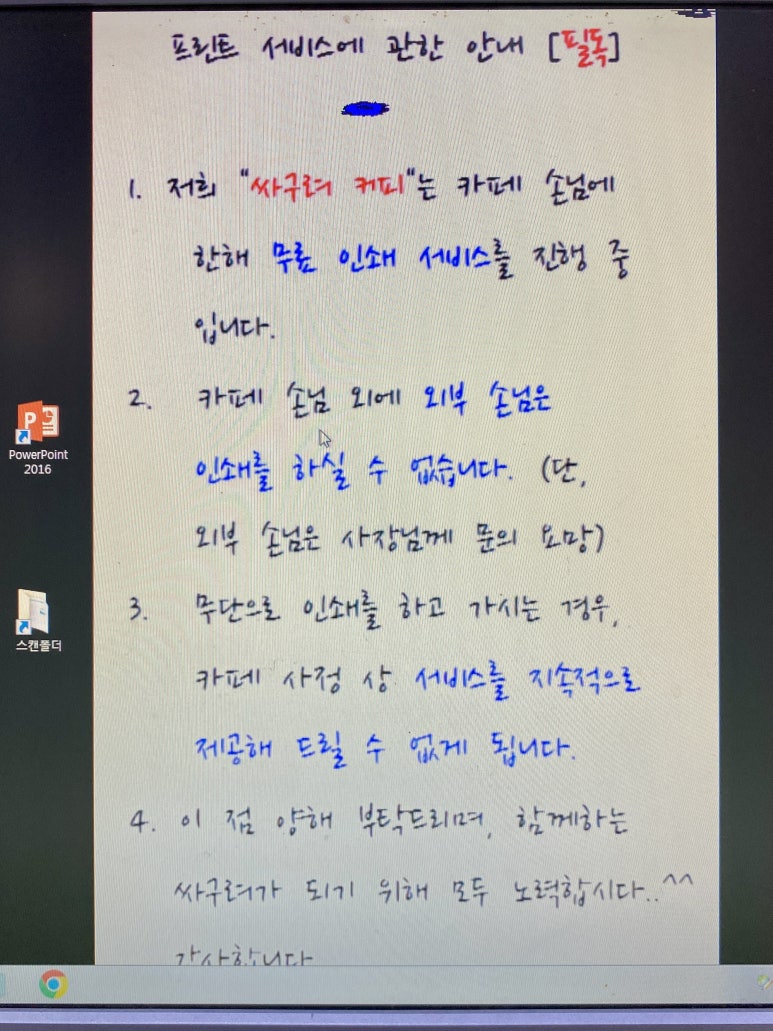 프린트 서비스에 관한 안내 [필독]
1. 저희 "싸구려 커피"는 카페 손님에
한해 무료 인쇄 서비스를 진행 중
입니다.
2. 카페 손님 외에 외부 손님은
인쇄를 하실 수 없습니다. (단,
외부 손님은 사장님께 문의 요망)
3. 무단으로 인쇄를 하고 가시는 경우,
카페 사정 상 서비스를 지속적으로
제공해 드릴 수 없게 됩니다.
4. 이 점 양해 부탁드리며, 함께하는
싸구려가 되기 위해 모두 노력합시다..^^
감사합니다
PowerPoint
2016
스캔폴더